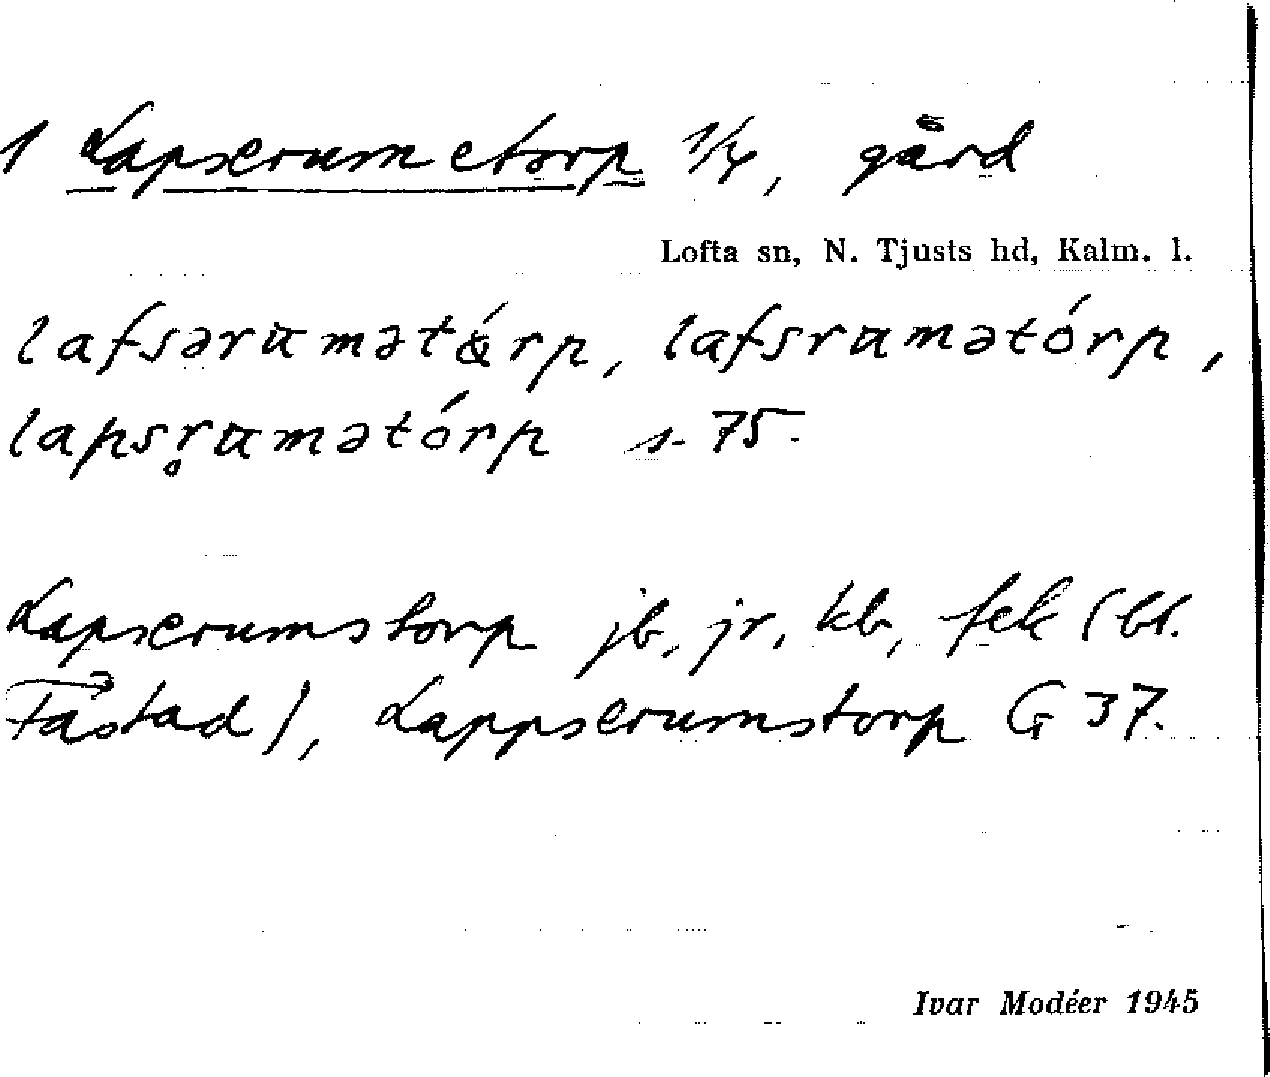 1 Lapserumetorp 1/4, gård
Lofta sn, N. Tjusts hd, Kalm. l.
lafsərumətórp, lafsrumətórp,
lapsr̥umətórp s. 75.
Lapserumstorp jb, jr, kb, fek (bl.
Fästad), Lappserumstorp G 37.
Ivar Modéer 1945